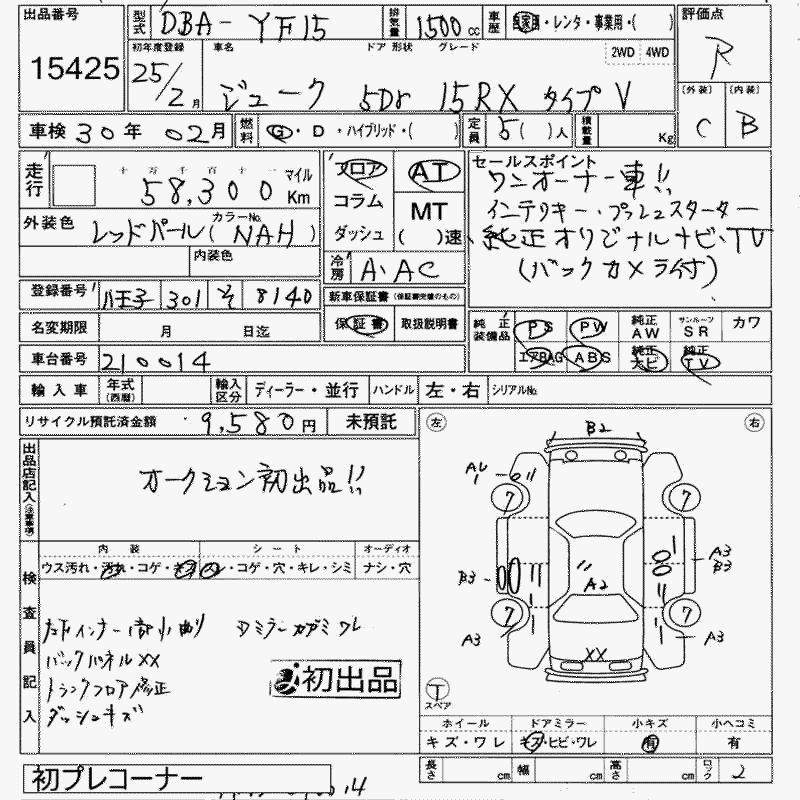 出品番号 15425
型式 DBA-YF15
排気量 1500 cc
車歴 自家用・レンタ・事業用・( )
評価点 R
初年度登録 25/2月
車名 ジューク
ドア 形状 5Dr
グレード 15RX タイプV
2WD 4WD
〔外装〕 C
〔内装〕 B
車検 30年 02月
燃料 G・D・ハイブリッド・( )
定員 5( )人
積載量 Kg
走行 十 万 千 百 十 一 マイル
58,300 Km
フロア
コラム
ダッシュ
AT
MT
( )速
セールスポイント
ワンオーナー車!!
インテリキー・プッシュスターター
純正オリジナルナビ・TV
(バックカメラ付)
外装色 レッドパール
カラーNo. (NAH)
内装色
冷房 A・AC
登録番号 八王子 301 そ 8140
新車保証書(保証書完備のもの)
名変期限 月 日迄
保証書 取扱説明書
純正装備品 PS PW 純正AW サンルーフSR カワ
エアBAG ABS 純正ナビ 純正TV
車台番号 210014
輸入車 年式(西暦) 輸入区分 ディーラー・並行 ハンドル 左・右 シリアルNo.
リサイクル預託済金額 9,580円 未預託
出品店記入(注意事項)
オークション初出品!!
左 右
B2
AU
1
7 7
A3
B3
B3
A2
7 7
A3
A3
XX
T
スペア
内装 シート オーディオ
ウス汚れ・汚れ・コゲ・キズ スレ・コゲ・穴・キレ・シミ ナシ・穴
検査員記入
バックパネルXX
トランクフロア修正
ダッシュキズ
初出品
ホイール ドアミラー 小キズ 小ヘコミ
キズ・ワレ キズ・ヒビ・ワレ 有 有
初プレコーナー
長さ cm 幅 cm 高さ cm ロック 2